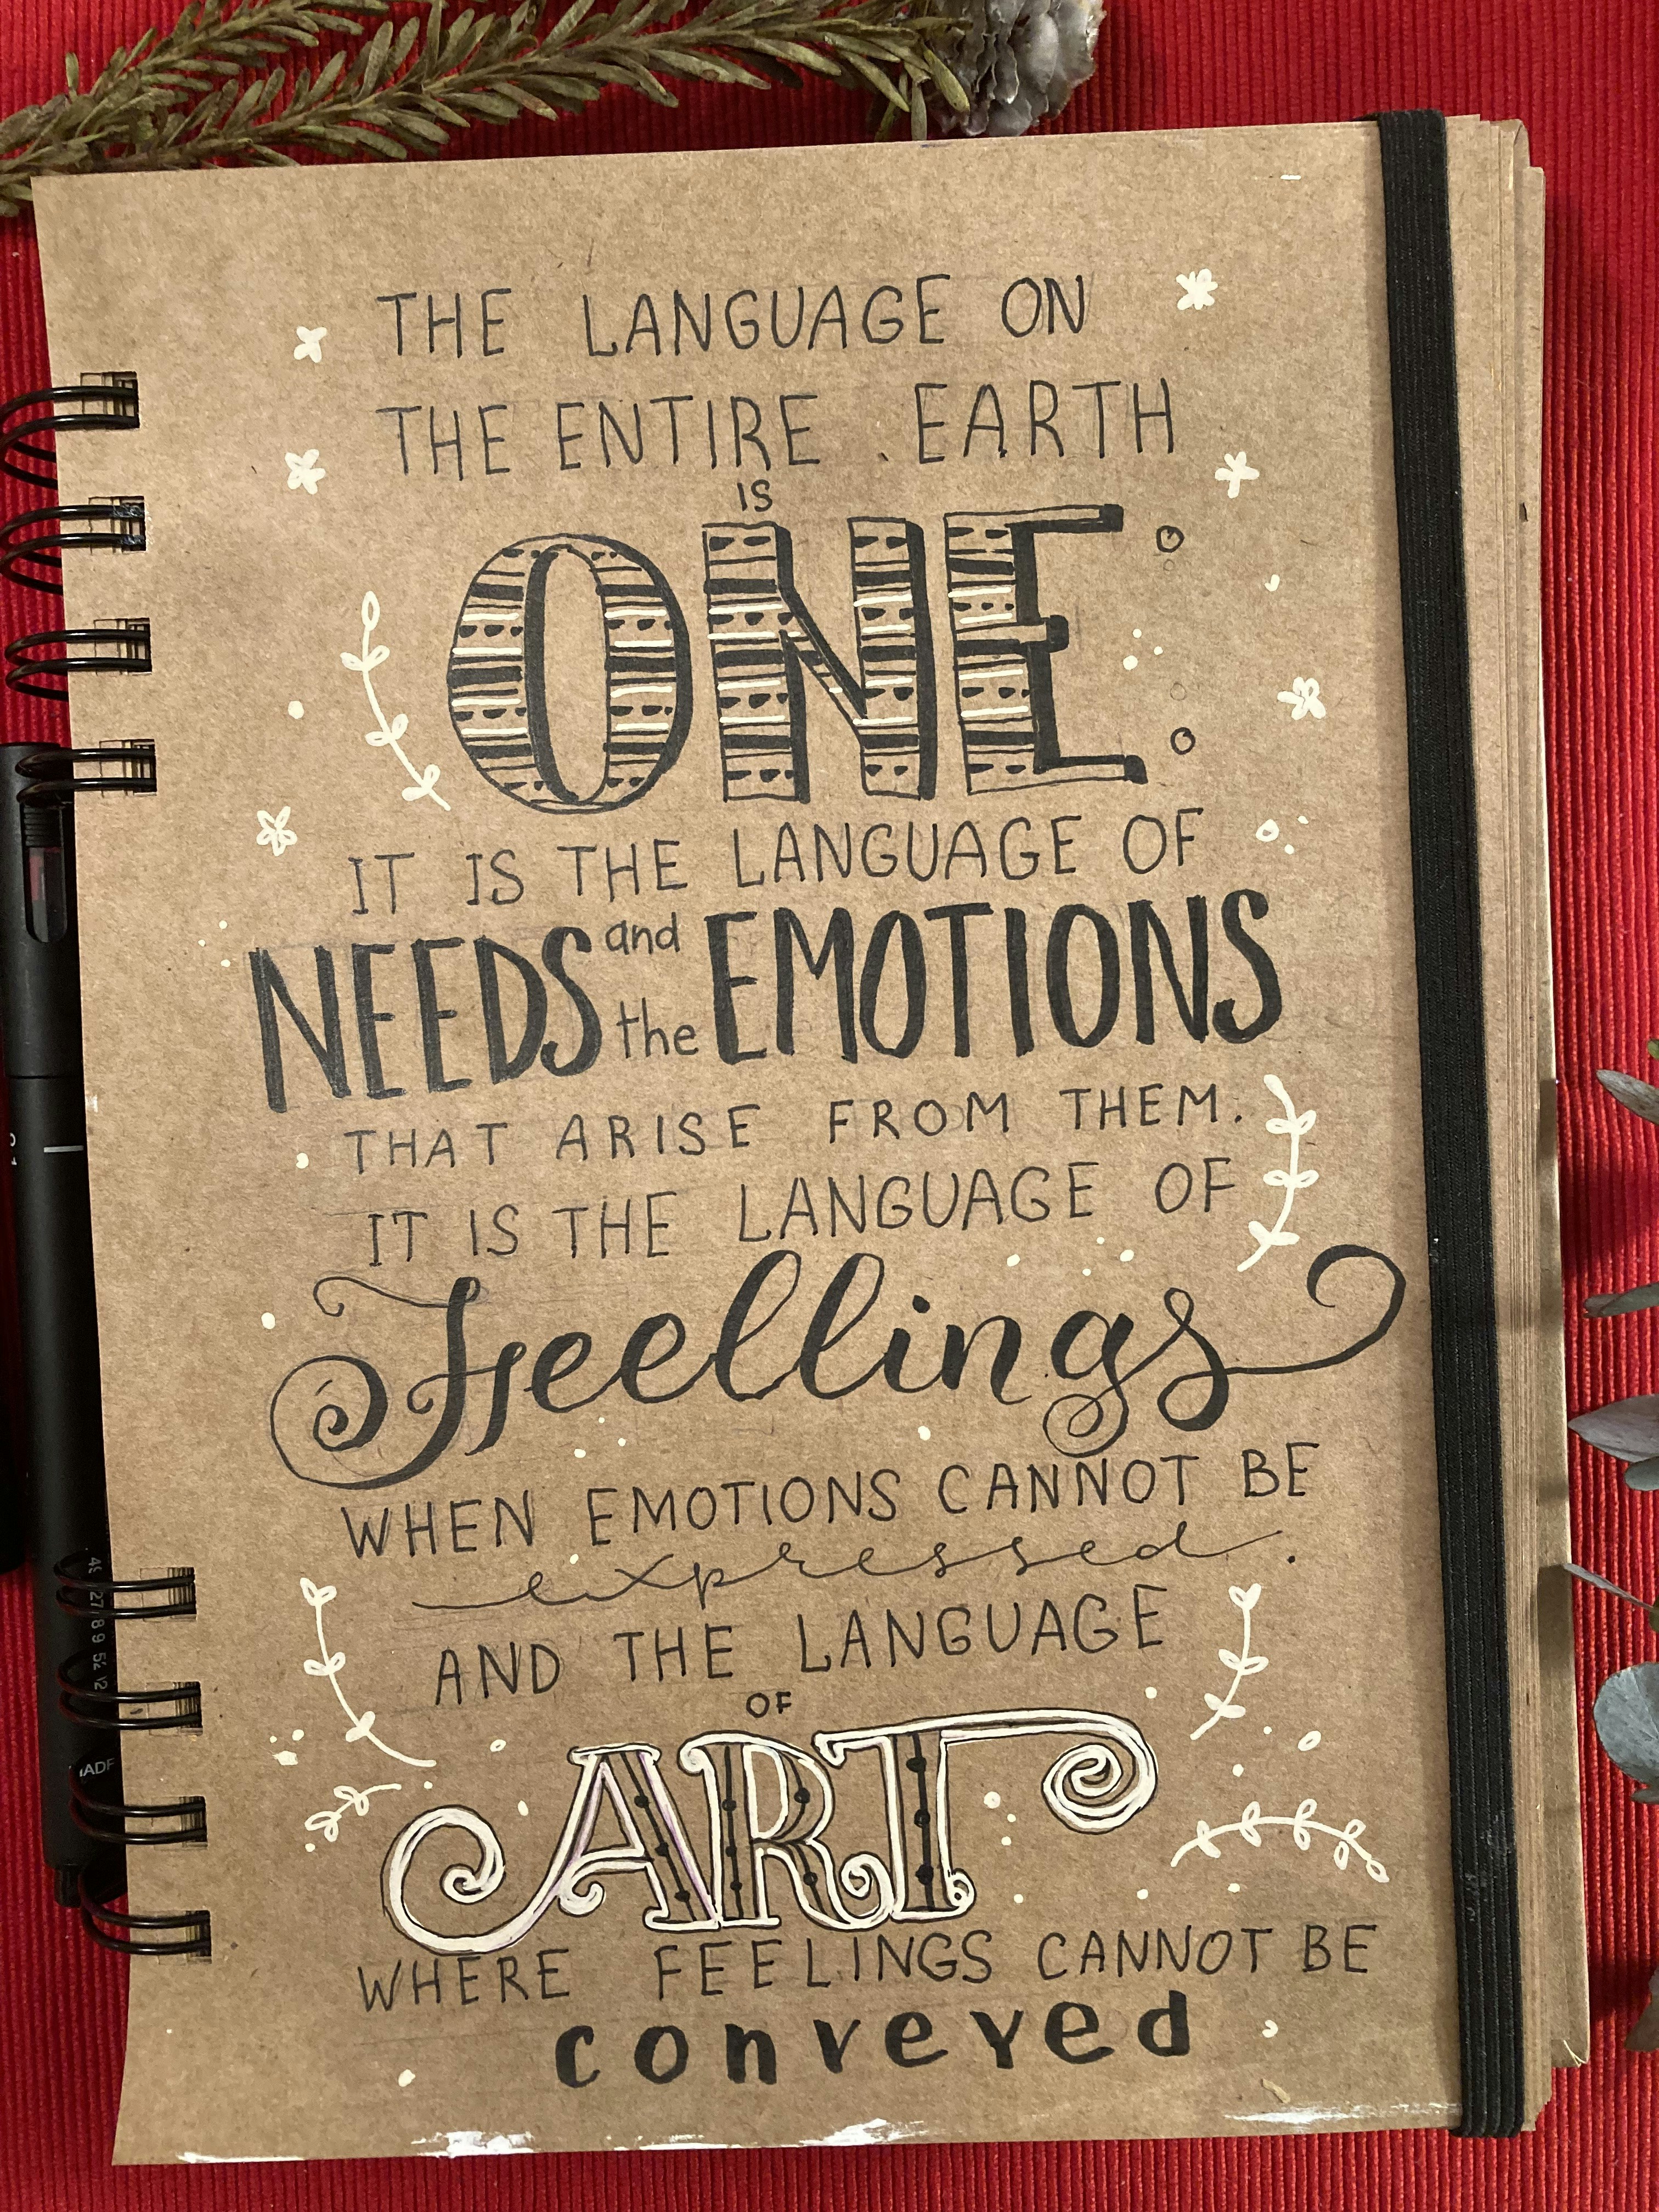 THE LANGUAGE ON
THE ENTIRE EARTH
IS
ONE
IT IS THE LANGUAGE OF
NEEDS and the EMOTIONS
THAT ARISE FROM THEM.
IT IS THE LANGUAGE OF
Feellings
WHEN EMOTIONS CANNOT BE
expressed.
AND THE LANGUAGE
OF
ART
WHERE FEELINGS CANNOT BE
conveyed